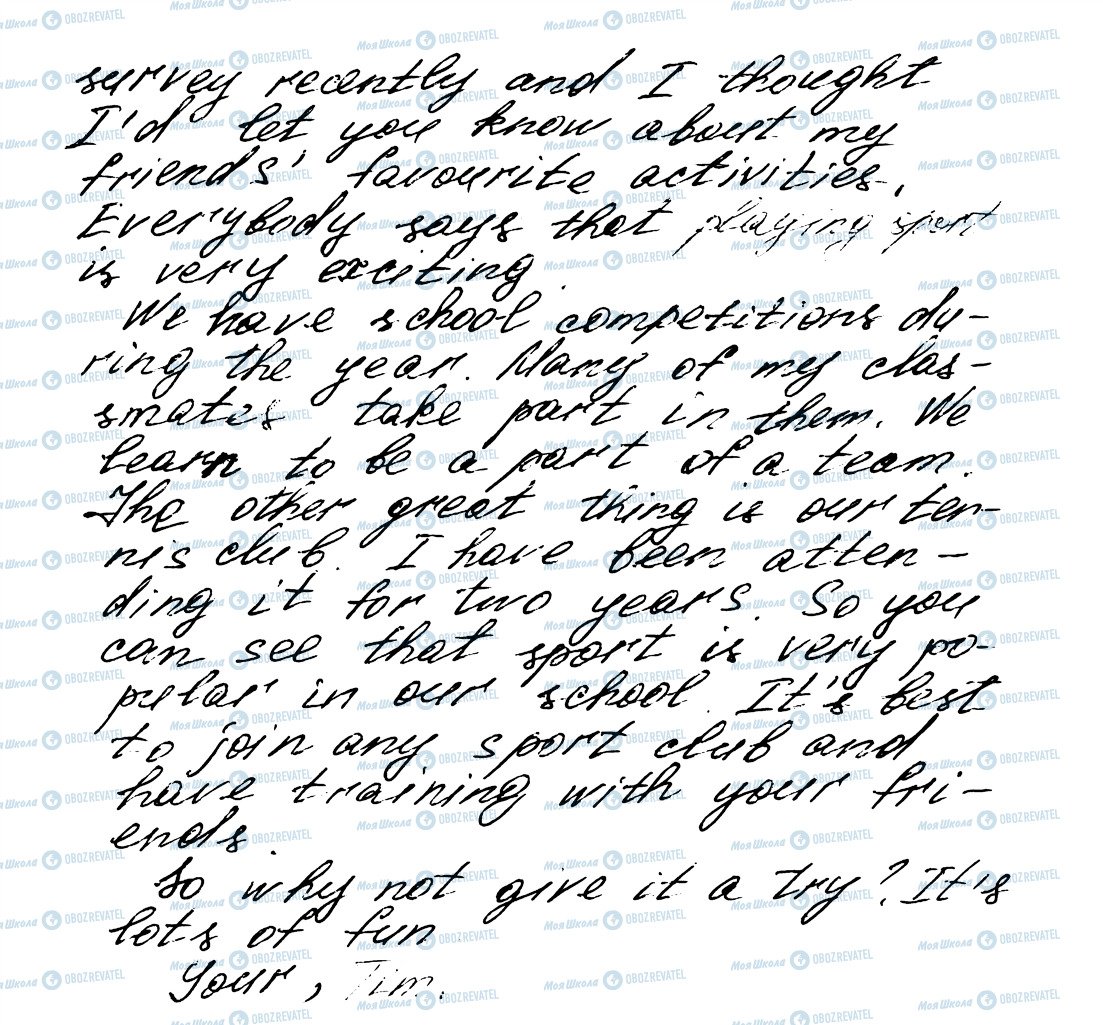 survey recently and I thought
I'd let you know about my
friends' favourite activities.
Everybody says that playing sport
is very exciting.
We have school competitions du-
ring the year. Many of my clas-
smates take part in them. We
learn to be a part of a team.
The other great thing is our ten-
nis club. I have been atten-
ding it for two years. So you
can see that sport is very po-
pular in our school. It's best
to join any sport club and
have training with your fri-
ends.
So why not give it a try? It's
lots of fun.
Your, Tim.